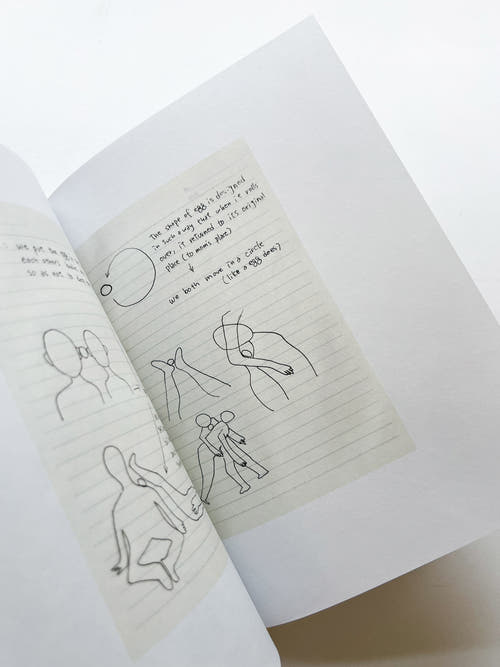 We put the egg
each other's
so as not to
The shape of egg is designed
in such a way that when it rolls
over, it returned to its original
place (to mom's place)
↓
We both move in a circle
(like a egg does)